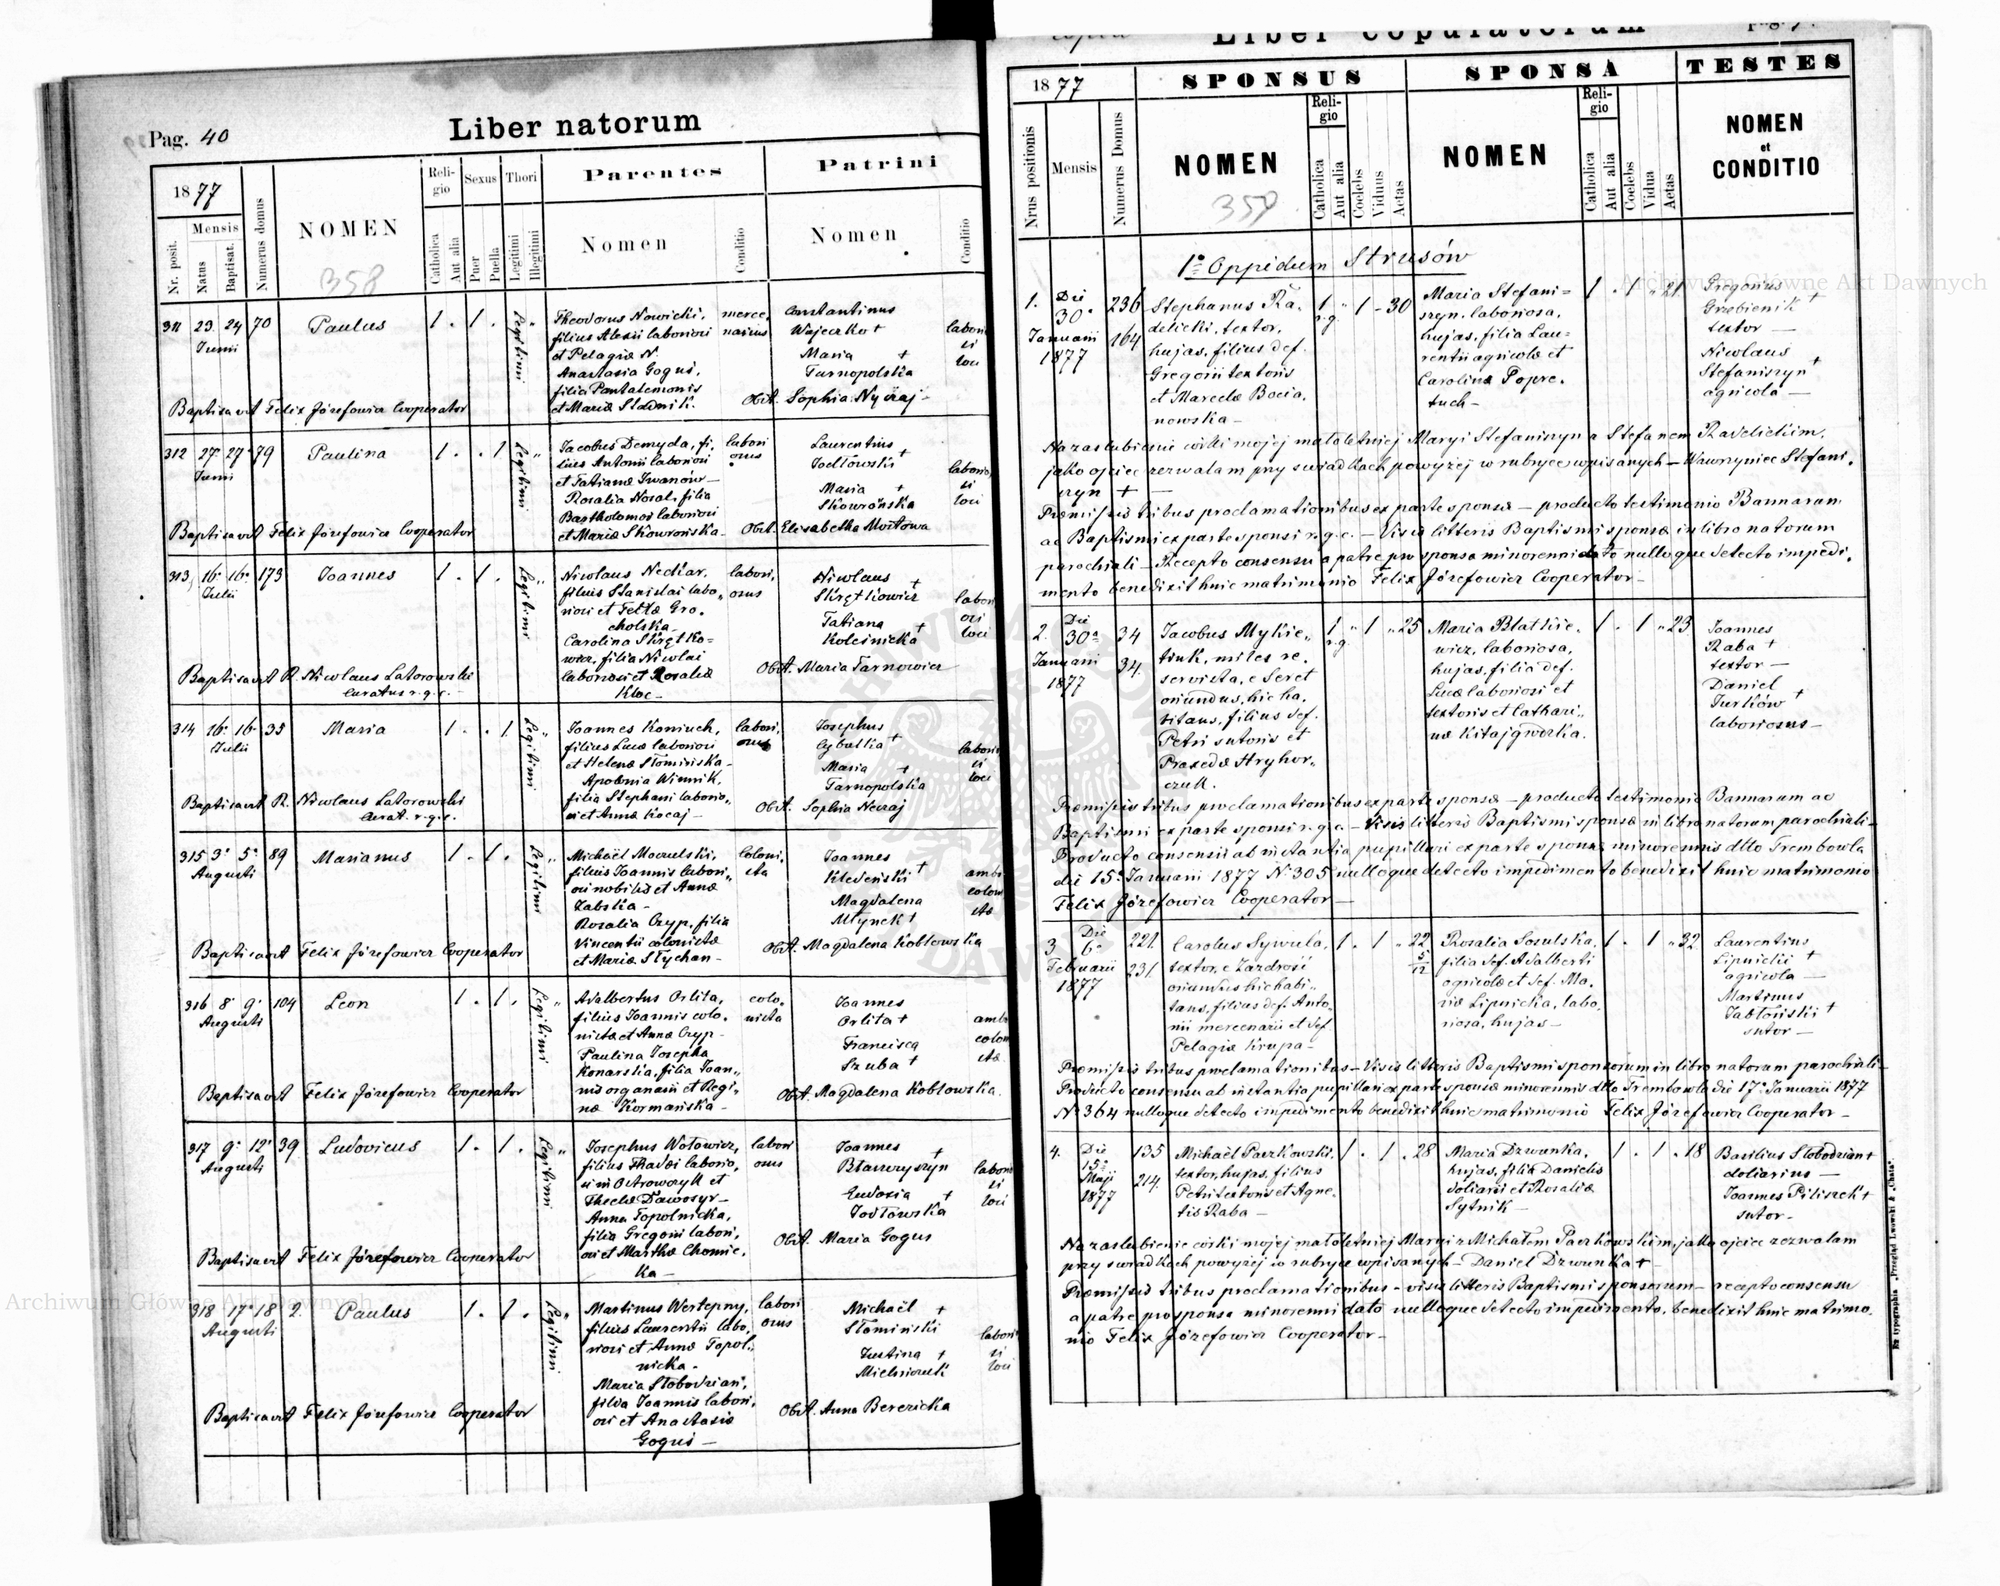 Pag. 40
Liber natorum
1877
Nr. posit.
Mensis
Natus
Baptisat.
Numerus domus
NOMEN
358
Religio
Catholica
Aut alia
Sexus
Puer
Puella
Thori
Legitimi
Illegitimi
Parentes
Nomen
Conditio
Patrini
Nomen
Conditio
311 23. 24 70 Paulus 1 . 1 .
Junii
Legitimi
Theodorus Nowicki,
filius Alexii laboriosi
et Pelagiæ N.
Anastasia Gogus,
filia Pantalemonis
et Mariæ Stadnik.
merce
narius
Constantinus
Wajeczko +
Maria +
Tarnopolska
Baptisavit Felix Józefowicz Cooperator
Obst. Sophia
312 27. 27. 79 Paulina 1 . . 1
Junii
Legitimi
Jacobus Demyda, fi-
lius Antonii laboriosi
et Tatianæ Iwanów —
Rosalia Nosal, filia
Bartholomæi laboriosi
et Mariæ Skowrońska —
labori
osus
Laurentius
Jodłowski +
Maria +
Skowrońska
Baptisavit Felix Józefowicz Cooperator
Obst. Elisabetha Mostowa
313 16. 16. 173 Joannes 1 . 1 .
Julii
Legitimi
Nicolaus Neckar,
filius Stanislai labo-
riosi et Teklæ Gro-
cholska —
Carolina Skrętko-
wicz, filia Nicolai
laboriosi et Rosaliæ
Kloc —
labori,
osus
Nicolaus +
Skrętkowicz
Tatiana +
Koleśnicka
Baptisavit R. Nicolaus Latorowski
Curatus r. g. c.
Obst. Maria Tarnowicz
314 16. 16. 35 Maria 1 . . 1
Julii
Legitimi
Joannes Koniuch,
filius Lucæ laboriosi
et Helenæ Słomińska —
Apolonia Winnik,
filia Stephani laborio-
si et Annæ Kocaj —
labori,
osus
Josephus
Cybulka +
Maria +
Tarnopolska
Baptisavit R. Nicolaus Latorowski
Curat. r. g. c.
Obst. Sophia
315 3. 5. 89 Marianus 1 . 1 .
Augusti
Legitimi
Michaël Moczulski,
filius Joannis labori-
osi nobilis et Annæ
Zabska —
Rosalia Czyp, filia
Vincentii colonistæ
et Mariæ Stychan —
coloni,
sta
Joannes
+
Magdalena
Młynek +
Baptisavit Felix Józefowicz Cooperator
Obst. Magdalena Kobłowska
316 8. 9. 104 Leon 1 . 1 .
Augusti
Legitimi
Adalbertus Orlita,
filius Joannis colo-
nistæ et Annæ Czyp —
Paulina Josepha
Konarska, filia Joan-
nis organarii et Regi-
næ Kormańska —
colo-
nista
Joannes
Orlita +
Francisca
Szuba +
Baptisavit Felix Józefowicz Cooperator
Obst. Magdalena Kobłowska
317 9. 12. 39 Ludovicus 1 . 1 .
Augusti
Legitimi
Josephus Wołowicz,
filius Thadæi laborio-
si in Ostrowczyk et
Theclæ Dawosyr —
Anna Topolnicka,
filia Gregorii labori-
osi et Marthæ Chomic-
ka —
labori
osus
Joannes +
Błaszczyszyn
Eudoxia +
Jodłowska
Baptisavit Felix Józefowicz Cooperator
Obst. Maria Gogus
318 17. 18 2. Paulus 1 . 1 .
Augusti
Legitimi
Martinus Wertepny,
filius Laurentii labo-
riosi et Annæ Topol-
nicka —
Maria Słobodzian,
filia Joannis labori-
osi et Anastasiæ
Gogus —
labori
osus
Michaël +
Słomiński
Justina +
Baptisavit Felix Józefowicz Cooperator
Obst. Anna Berezicka
Liber copulatorum
1877
Nrus positionis
Mensis
Numerus Domus
SPONSUS
NOMEN
359
Religio
Catholica
Aut alia
Coelebs
Viduus
Aetas
SPONSA
NOMEN
Religio
Catholica
Aut alia
Coelebs
Vidua
Aetas
TESTES
NOMEN
et
CONDITIO
1° Oppidum Strusów
1. Die
30ª
Januarii
1877
236
164
Stephanus Ra-
delicki, textor,
hujas, filius def.
Gregorii textoris
et Marcelæ Bocia-
nowska —
1 r.g. " 1 - 30
Maria Stefani=
szyn, laboriosa,
hujas, filia Lau=
rentii agricolæ et
Carolinæ Popre-
tuch —
1 . 1 " 21
Gregorius
Grzebienik +
textor —
Nicolaus
Stefaniszyn +
agricola —
Na zaślubienie córki mojej małoletniej Maryi Stefaniszyn z Stefanem Radelickim,
jako ojciec zezwalam przy świadkach powyżej w rubryce wpisanych — Wawryniec Stefani-
szyn +
Præmissis tribus proclamationibus ex parte sponsæ — producto testimonio Bannorum
ac Baptismi ex parte sponsi r. g. c. — Visis litteris Baptismi sponsæ in libro natorum
parochiali — Recepto consensu a patre pro sponsa minorenni dato nulloque detecto impedi-
mento benedixit huic matrimonio Felix Józefowicz Cooperator —
2. Die
30ª
Januarii
1877
34
34.
Jacobus Mykie-
tiuk, miles re-
servista, e Seret
oriundus, hic ha-
bitans, filius def.
Petri sutoris et
Praxedæ Hryhor-
czuk.
1 r.g. " 1 " 25
Maria Blatkie-
wicz, laboriosa,
hujas, filia def.
Lucæ laboriosi et
textoris et Cathari-
næ Kitajgrodzka.
1 . 1 " 23
Joannes
Raba +
textor —
Daniel
Jurków +
laboriosus —
Præmissis tribus proclamationibus ex parte sponsæ — producto testimonio Bannorum ac
Baptismi ex parte sponsi r. g. c. — Visis litteris Baptismi sponsæ in libro natorum parochiali —
Producto consensu ab instantia pupillari ex parte sponsæ minorennis dtto Trembowla
die 15. Januarii 1877 N° 305 nulloque detecto impedimento benedixit huic matrimonio
Felix Józefowicz Cooperator —
3. Die
6ª
Februarii
1877
221.
231.
Carolus Sywula,
textor, e Zazdrość
oriundus hic habi-
tans, filius def. Anto-
nii mercenarii et def.
Pelagiæ Krupa —
1 . 1 " 22 5/12
Rosalia Sosulska,
filia def. Adalberti
agricolæ et def. Ma-
riæ Lipnicka, labo-
riosa, hujas —
1 . 1 " 32
Laurentius
Lipnicki +
agricola —
Martinus
Jabłoński +
sutor —
Præmissis tribus proclamationibus — Visis litteris Baptismi sponsorum in libro natorum parochiali —
Producto consensu ab instantia pupillari ex parte sponsæ minorennis dtto Trembowla die 17. Januarii 1877
N° 364 nulloque detecto impedimento benedixit huic matrimonio Felix Józefowicz Cooperator —
4. Die
15ª
Maji
1877
135
214.
Michaël Paczkowski,
textor, hujas, filius
Petri textoris et Agne-
tis Raba —
1 . 1 . 28
Maria Dzwunka,
hujas, filia Danielis
doliarii et Rosaliæ
Sytnik —
1 . 1 . 18
Basilius Słobodzian +
doliarius —
Joannes Piliszek +
sutor —
Na zaślubienie córki mojej małoletniej Maryi z Michałem Paczkowskim, jako ojciec zezwalam
przy świadkach powyżej w rubryce wpisanych — Daniel Dzwunka +
Præmissis tribus proclamationibus — visis litteris Baptismi sponsorum — recepto consensu
a patre pro sponsa minorenni dato nulloque detecto impedimento, benedixit huic matrimo-
nio Felix Józefowicz Cooperator —
Ex typographia „Przegląd Lwowski & „Chata".
Archiwum Główne Akt Dawnych
Archiwum Główne Akt Dawnych